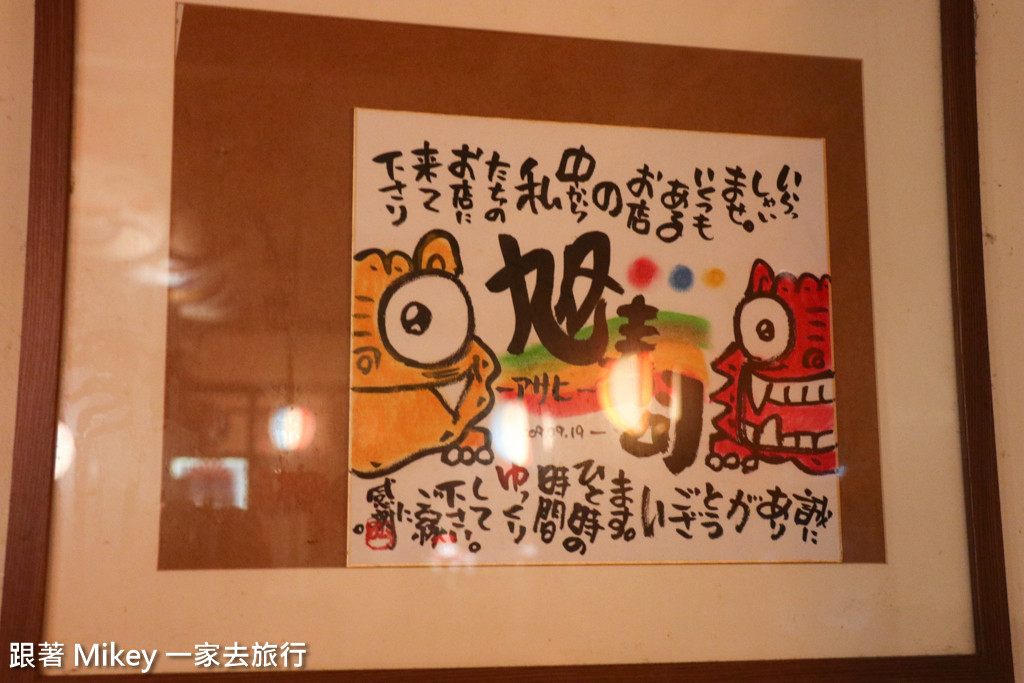 いらっ
しゃい
ませ。
いくつも
ある
お店
の
中から
私
たちの
お店に
来て
下さり
旭
寿司
ーアサヒー
09.09.19ー
誠に
あり
が
とう
ござ
い
ます。
ひと時の
時間
ゆっくり
して
下さい。
ご縁
に
感謝
。
跟著 Mikey 一家去旅行